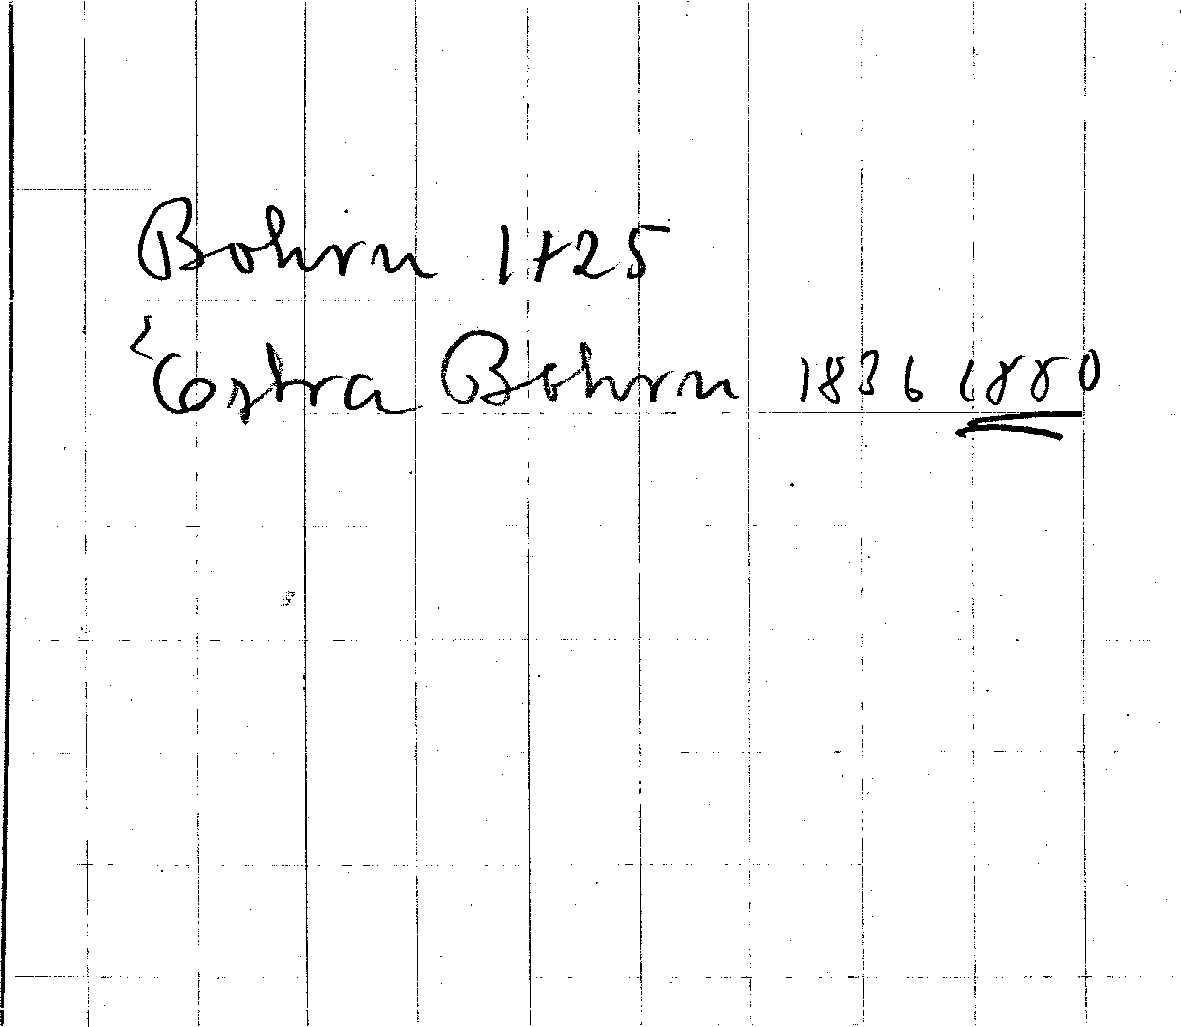 Bohrn 1725
Estra Bohrn 1836 1880